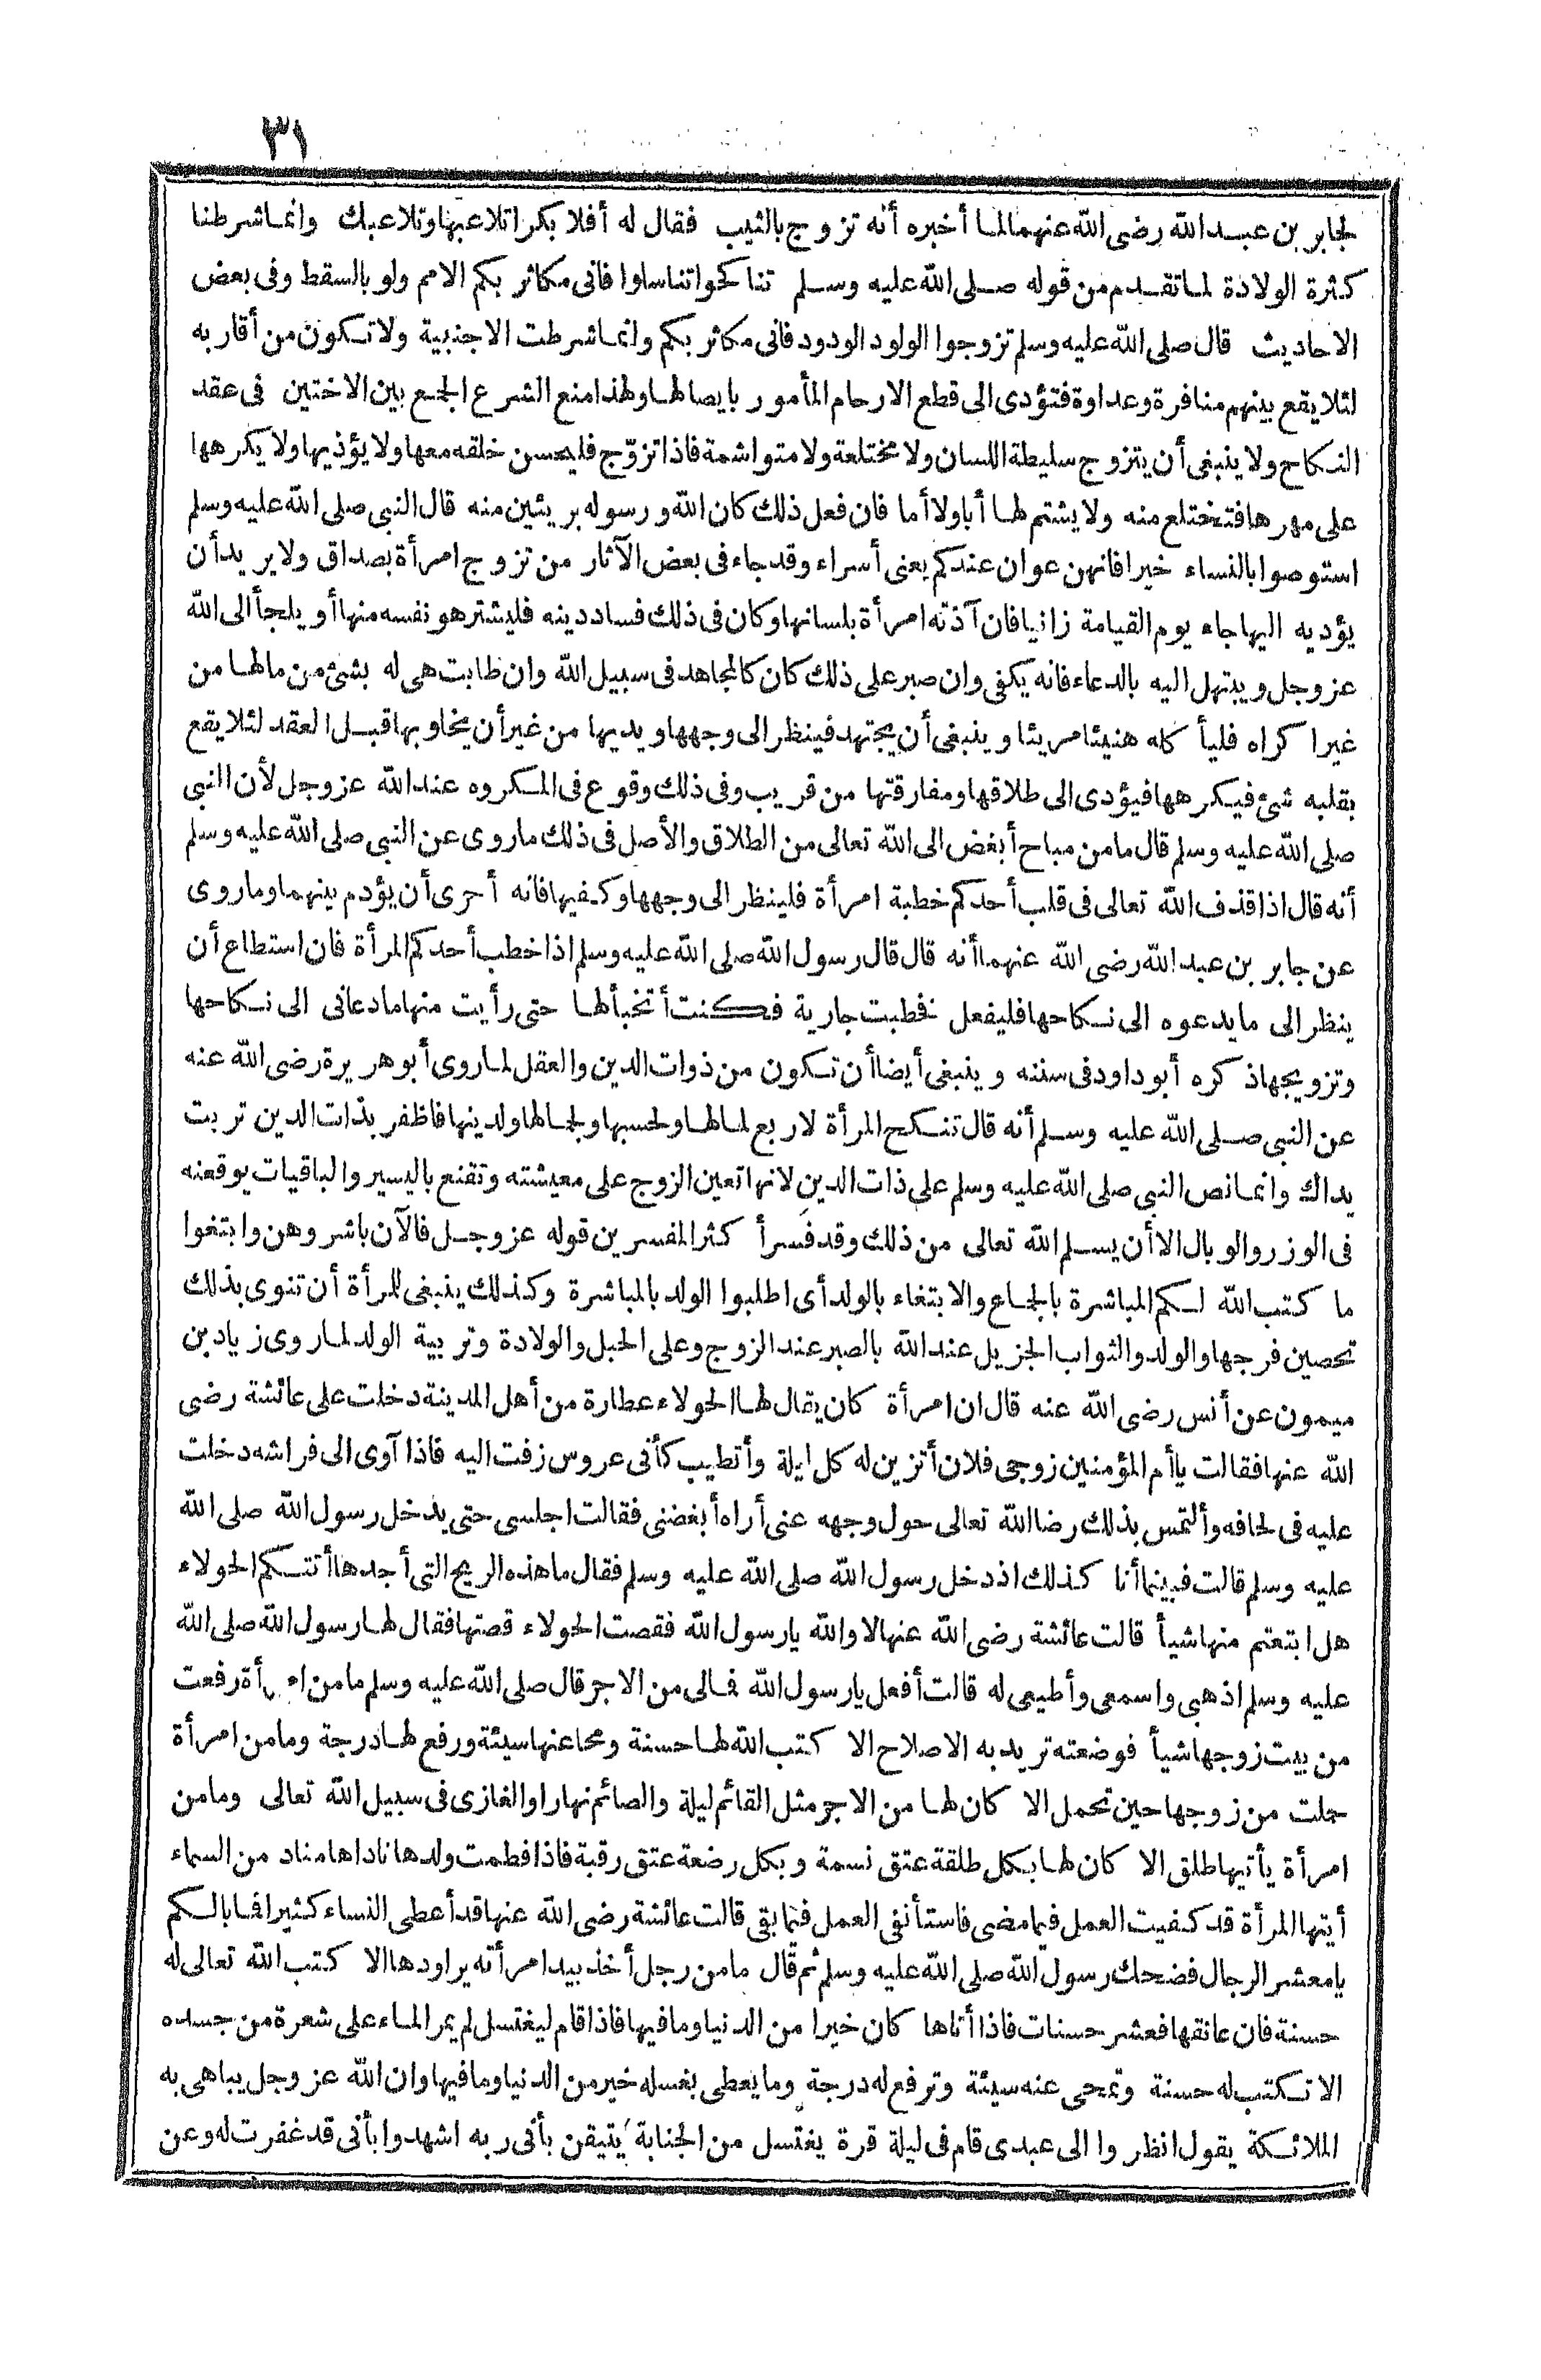 ٣١
لجابر بن عبد الله رضى الله عنهما لما أخبره أنه تزوج بالثيب فقال له أفلا بكرا تلاعبها وتلاعبك وانما شرطنا
كثرة الولادة لما تقدم من قوله صلى الله عليه وسلم تناكحوا تناسلوا فانى مكاثر بكم الامم ولو بالسقط وفى بعض
الاحاديث قال صلى الله عليه وسلم تزوجوا الولود الودود فانى مكاثر بكم وانما شرطت الاجنبية ولا تكون من أقاربه
لئلا يقع بينهم منافرة وعداوة فتؤدى الى قطع الارحام المأمور بايصالها ولهذا منع الشرع الجمع بين الاختين فى عقد
النكاح ولا ينبغى أن يتزوج سليطة اللسان ولا مختلعة ولا متواشمة فاذا تزوّج فليحسن خلقه معها ولا يؤذيها ولا يكرهها
على مهرها فتختلع منه ولا يشتم لها أبا ولا أما فان فعل ذلك كان الله ورسوله بريئين منه قال النبى صلى الله عليه وسلم
استوصوا بالنساء خيرا فانهن عوان عندكم يعنى أسراء وقد جاء فى بعض الآثار من تزوج امرأة بصداق ولا يريد أن
يؤديه اليها جاء يوم القيامة زانيا فان آذته امرأة بلسانها وكان فى ذلك فساد دينه فليشتر هو نفسه منها أو يلجأ الى الله
عز وجل ويبتهل اليه بالدعاء فانه يكفى وان صبر على ذلك كان كالمجاهد فى سبيل الله وان طابت هى له بشئ من مالها من
غير اكراه فليأ كله هنيئا مريئا وينبغى أن يجتهد فينظر الى وجهها ويديها من غير أن يخلو بها قبل العقد لئلا يقع
بقلبه شئ فيكرهها فيؤدى الى طلاقها ومفارقتها من قريب وفى ذلك وقوع فى المكروه عند الله عز وجل لأن النبى
صلى الله عليه وسلم قال ما من مباح أبغض الى الله تعالى من الطلاق والأصل فى ذلك ماروى عن النبى صلى الله عليه وسلم
أنه قال اذا قذف الله تعالى فى قلب أحدكم خطبة امرأة فلينظر الى وجهها وكفيها فانه أحرى أن يؤدم بينهما وماروى
عن جابر بن عبد الله رضى الله عنهما أنه قال قال رسول الله صلى الله عليه وسلم اذا خطب أحدكم المرأة فان استطاع أن
ينظر الى ما يدعوه الى نكاحها فليفعل فخطبت جارية فكنت أتخبأ لها حتى رأيت منها ما دعانى الى نكاحها
وتزويجها ذكره أبو داود فى سننه وينبغى أيضا أن تكون من ذوات الدين والعقل لماروى أبو هريرة رضى الله عنه
عن النبى صلى الله عليه وسلم أنه قال تنكح المرأة لاربع لمالها ولحسبها ولجمالها ولدينها فاظفر بذات الدين تربت
يداك وانما نص النبى صلى الله عليه وسلم على ذات الدين لانها تعين الزوج على معيشته وتقنع باليسير والباقيات يوقعنه
فى الوزر والوبال الا أن يسلم الله تعالى من ذلك وقد فسر أكثر المفسرين قوله عز وجل فالآن باشروهن وابتغوا
ما كتب الله لكم المباشرة بالجماع والابتغاء بالولد أى اطلبوا الولد بالمباشرة وكذلك ينبغى للمرأة أن تنوى بذلك
تحصين فرجها والولد والثواب الجزيل عند الله بالصبر عند الزوج وعلى الحبل والولادة وتربية الولد لماروى زياد بن
ميمون عن أنس رضى الله عنه قال ان امرأة كان يقال لها الحولاء عطارة من أهل المدينة دخلت على عائشة رضى
الله عنها فقالت يا أم المؤمنين زوجى فلان أتزين له كل ليلة وأتطيب كأنى عروس زفت اليه فاذا آوى الى فراشه دخلت
عليه فى لحافه وألتمس بذلك رضا الله تعالى حول وجهه عنى أراه أبغضنى فقالت اجلسى حتى يدخل رسول الله صلى الله
عليه وسلم قالت فبينما أنا كذلك اذ دخل رسول الله صلى الله عليه وسلم فقال ما هذه الريح التى أجدها أتتكم الحولاء
هل ابتعتم منها شيأ قالت عائشة رضى الله عنها لا والله يارسول الله فقصت الحولاء قصتها فقال لها رسول الله صلى الله
عليه وسلم اذهبى واسمعى وأطيعى له قالت أفعل يارسول الله فمالى من الاجر قال صلى الله عليه وسلم ما من امرأة رفعت
من بيت زوجها شيأ فوضعته تريد به الاصلاح الا كتب الله لها حسنة ومحا عنها سيئة ورفع لها درجة وما من امرأة
حملت من زوجها حين تحمل الا كان لها من الاجر مثل القائم ليلة والصائم نهارا والغازى فى سبيل الله تعالى وما من
امرأة يأتيها طلق الا كان لها بكل طلقة عتق نسمة وبكل رضعة عتق رقبة فاذا فطمت ولدها ناداها مناد من السماء
أيتها المرأة قد كفيت العمل فيما مضى فاستأنفى العمل فيما بقى قالت عائشة رضى الله عنها قد أعطى النساء كثيرا فما بالكم
يا معشر الرجال فضحك رسول الله صلى الله عليه وسلم ثم قال ما من رجل أخذ بيد امرأته يراودها الا كتب الله تعالى له
حسنة فان عانقها فعشر حسنات فاذا أتاها كان خيرا من الدنيا وما فيها فاذا قام ليغتسل لم يمر الماء على شعرة من جسده
الا تكتب له حسنة وتمحى عنه سيئة وترفع له درجة وما يعطى بغسله خير من الدنيا وما فيها وان الله عز وجل يباهى به
الملائكة يقول انظروا الى عبدى قام فى ليلة قرة يغتسل من الجنابة يتيقن بأنى ربه اشهدوا بأنى قد غفرت له وعن